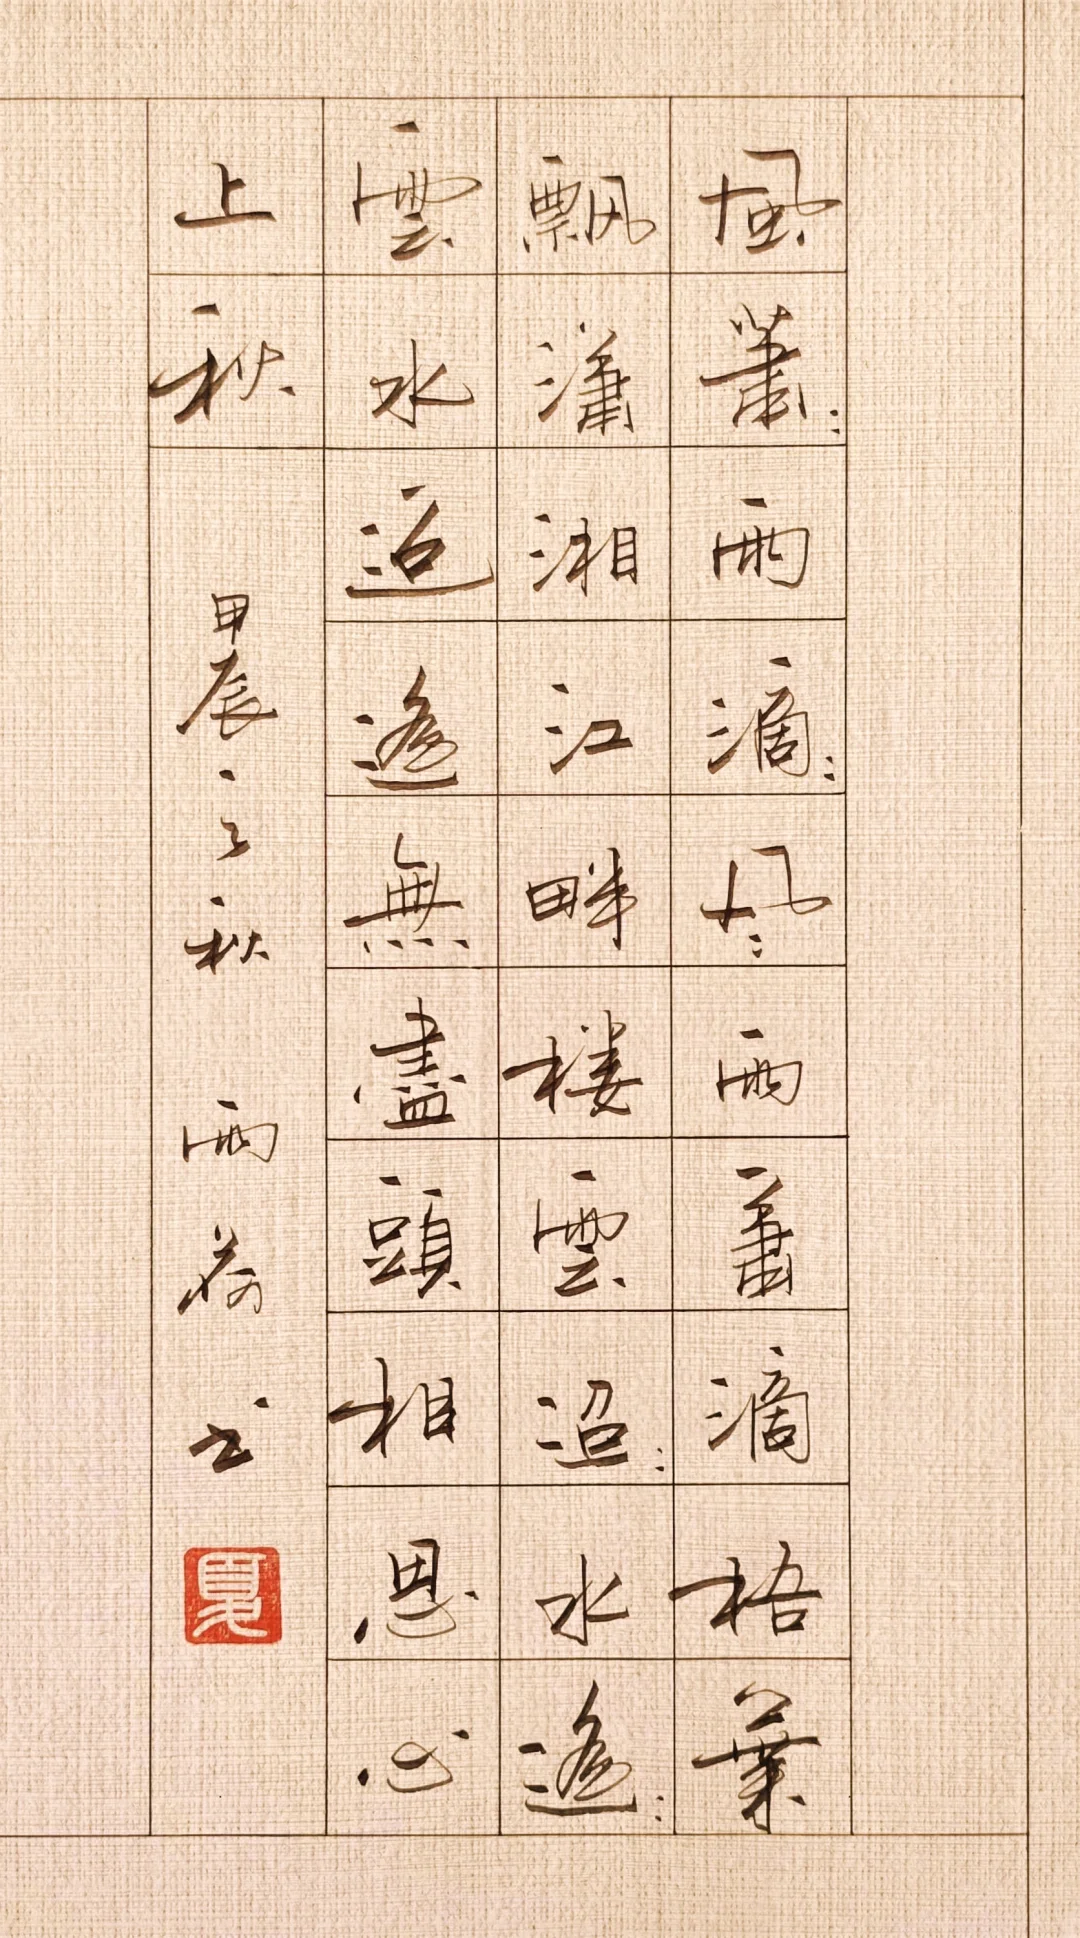 風蕭:雨滴:风雨蕭滴梧葉
飄瀟湘江畔楼雲迢:水遙:
雲水迢遙無盡頭相思心
上秋 甲辰之秋 雨荷书
夏